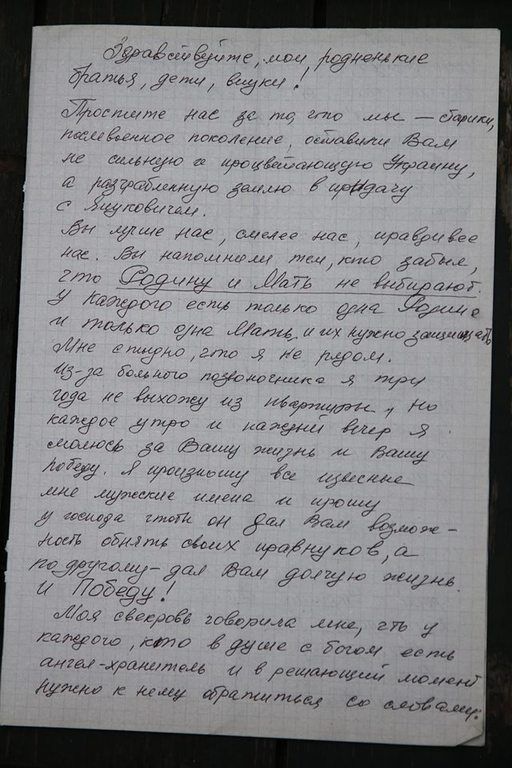 Здравствуйте, мои родненькие
братья, дети, внуки!
Простите нас за то что мы — старики,
послевоенное поколение, оставили Вам
не сильную и процветающую Украину,
а разграбленную землю в придачу
с Януковичем.
Вы лучше нас, смелее нас, правдивее
нас. Вы напомнили тем, кто забыл,
что Родину и Мать не выбирают.
У каждого есть только одна Родина
и только одна Мать и их нужно защищать
Мне стыдно, что я не рядом.
Из-за больного позвоночника я три
года не выхожу из квартиры, но
каждое утро и каждый вечер я
молюсь за Вашу жизнь и Вашу
победу. Я произношу все известные
мне мужские имена и прошу
у господа чтобы он дал Вам возмож-
ность обнять своих правнуков, а
по другому – дал Вам долгую жизнь.
И Победу!
Моя свекровь говорила мне, что у
каждого, кто в душе с богом есть
ангел-хранитель и в решающий момент
нужно к нему обратиться со словами: